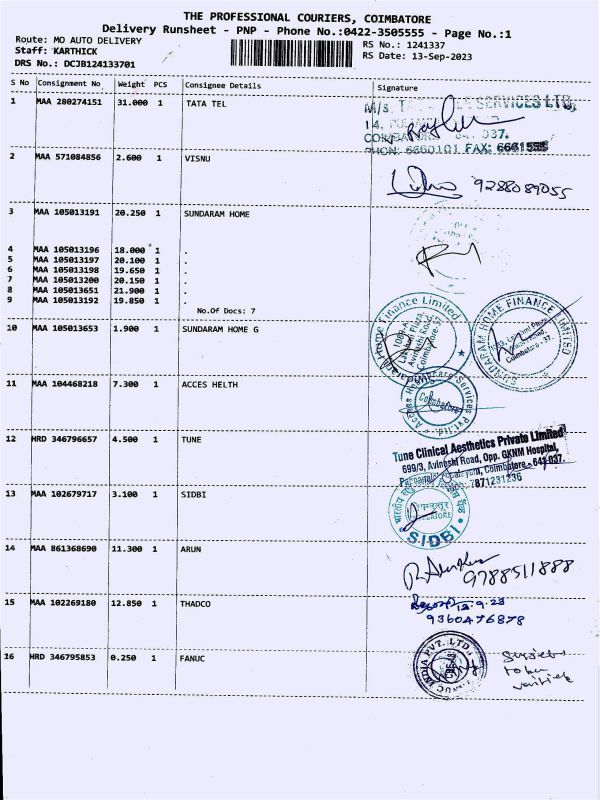 THE PROFESSIONAL COURIERS, COIMBATORE
Delivery Runsheet - PNP - Phone No.:0422-3505555 - Page No.:1
Route: MO AUTO DELIVERY RS No.: 1241337
Staff: KARTHICK RS Date: 13-Sep-2023
DRS No.: DCJB124133701
S No Consignment No Weight PCS Consignee Details Signature
1 MAA 280274151 31.000 1 TATA TEL
M/s. SERVICES LTD,
14,
037.
PHON: 6660101 FAX: 6661555
2 MAA 571084856 2.600 1 VISNU
9288089055
3 MAA 105013191 20.250 1 SUNDARAM HOME
4 MAA 105013196 18.000 1 .
5 MAA 105013197 20.100 1 .
6 MAA 105013198 19.650 1 .
7 MAA 105013200 20.150 1 .
8 MAA 105013651 21.900 1 .
9 MAA 105013192 19.850 1 .
No.Of Docs: 7
Home Finance Limited
1089-A
Lakshmi Plaza,
Avinashi Road,
Coimbatore-37.
SUNDARAM HOME FINANCE LIMITED
Coimbatore - 37.
10 MAA 105013653 1.900 1 SUNDARAM HOME G
11 MAA 104468218 7.300 1 ACCES HELTH
Access Healthcare Services Pvt.Ltd
Coimbatore
12 HRD 346796657 4.500 1 TUNE
Tune Clinical Aesthetics Private Limited
699/3, Avinashi Road, Opp. GKNM Hospital,
Coimbatore - 641 037.
7871231236
13 MAA 102679717 3.100 1 SIDBI
SIDBI
14 MAA 861368690 11.300 1 ARUN
9788511888
15 MAA 102269180 12.850 1 THADCO
12.9.23
9360476878
16 HRD 346795853 0.250 1 FANUC
FANUC INDIA PVT. LTD
Subject
to be
verified